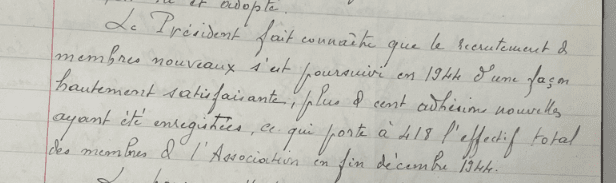 lu et adopté.
Le Président fait connaître que le recrutement d
membres nouveaux s'est poursuivi en 1944 d'une façon
hautement satisfaisante, plus d cent adhésions nouvelles
ayant été enregistrées, ce qui porte à 418 l'effectif total
des membres d l'Association en fin décembre 1944.